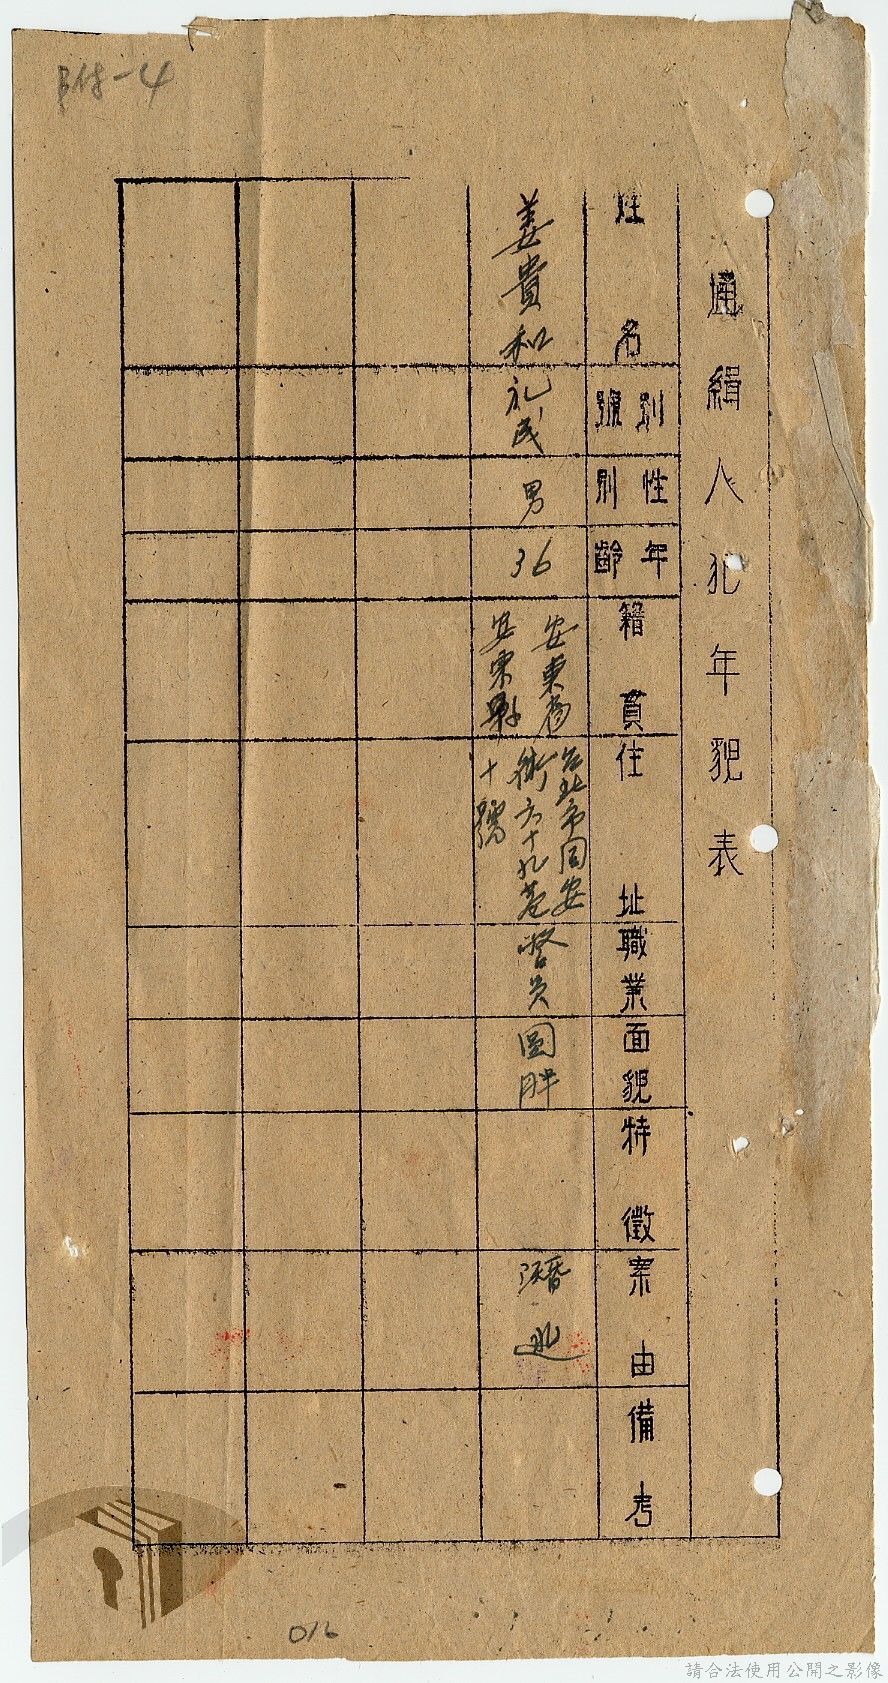 附-4
通緝人犯年貌表
姓名
別號
性別
年齡
籍貫
住址
職業
面貌
特徵
案由
備考
姜貴和
礼民
男
36
安東省
安東縣
台北市同安
街六十九巷
十號
警員
圓胖
潛逃
016
請合法使用公開之影像